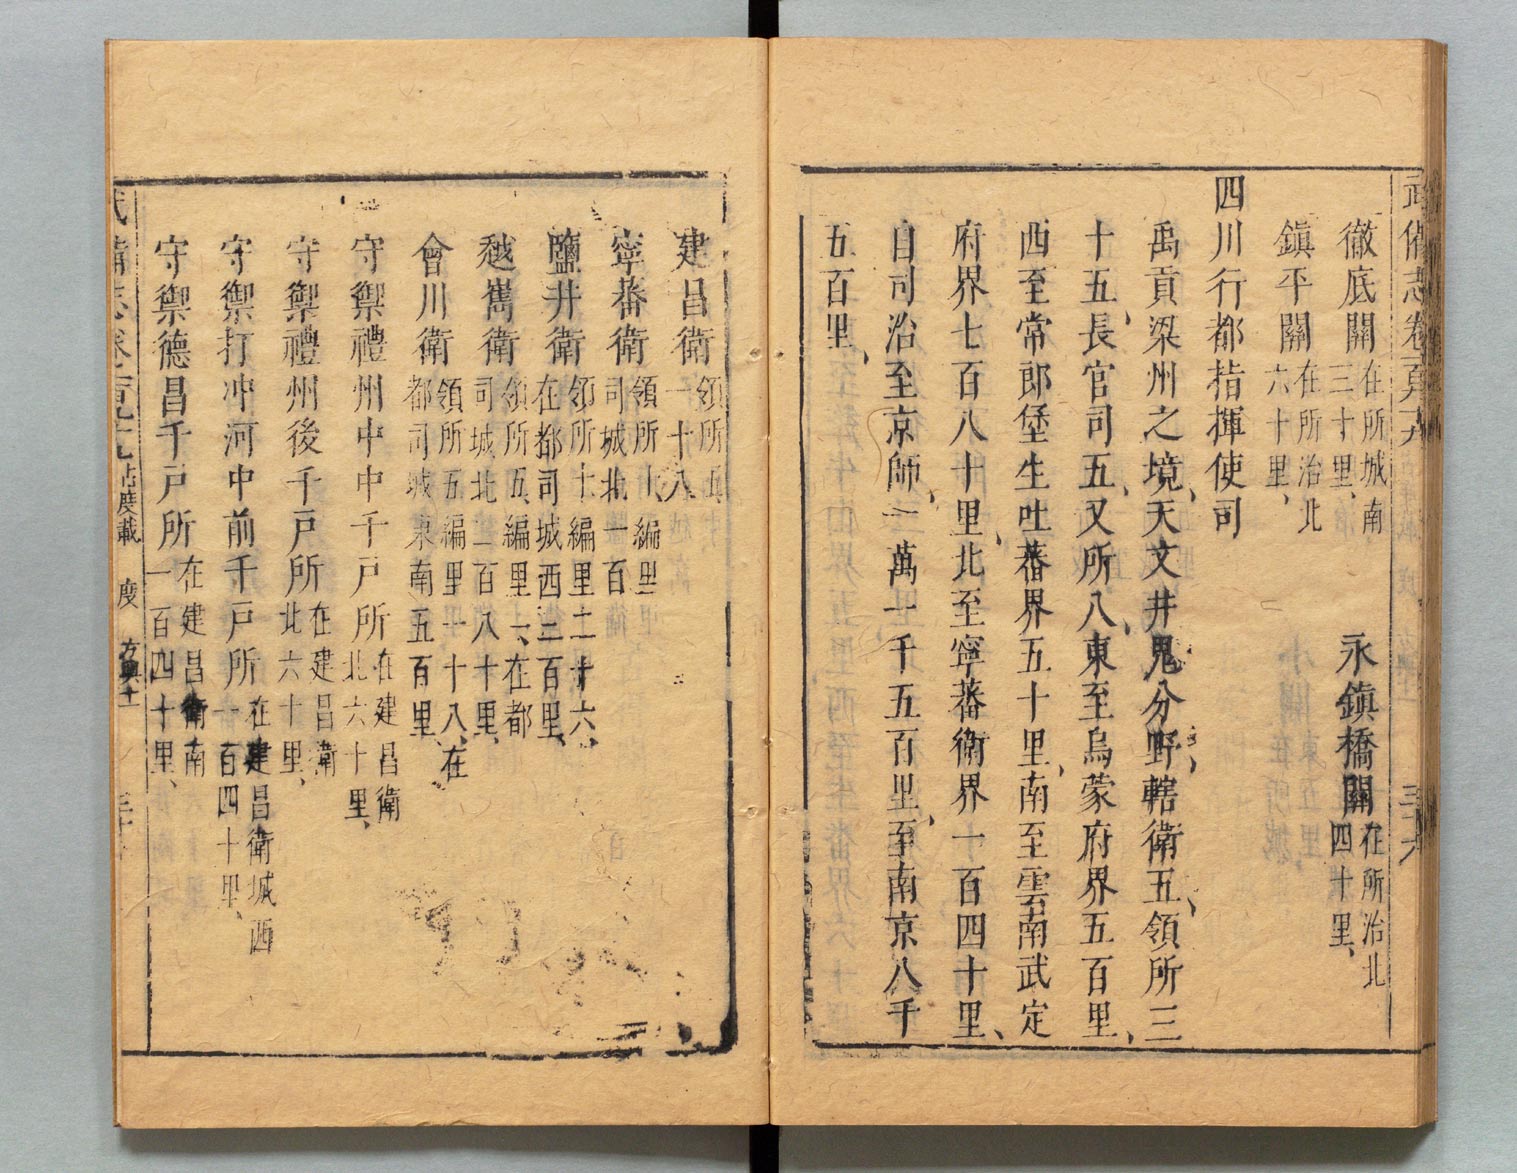 武備志卷 三十六
徹底關在所城南三十里、 永鎮橋關在所治北四十里、
鎮平關在所治北六十里、
四川行都指揮使司
禹貢梁州之境、天文井鬼分野、轄衛五、領所三
十五、長官司五、又所八、東至烏蒙府界五百里、
西至常郎堡生吐蕃界五十里、南至雲南武定
府界七百八十里、北至寧蕃衛界一百四十里、
自司治至京師、一萬一千五百里、至南京八千
五百里、
建昌衛領所五一十八
寧蕃衛領所 編里司城北一百
鹽井衛領所 編里二十六、在都司城西三百里、
越嶲衛領所五、編里一、在都司城北二百八十里、
會川衛領所五編里一十八、在都司城東南五百里
守禦禮州中中千戸所在建昌衛北六十里、
守禦禮州後千戸所在建昌衛北六十里、
守禦打冲河中前千戸所在建昌衛城西一百四十里、
守禦德昌千戸所在建昌衛南一百四十里、
武備志卷 占度載 度 方輿十一